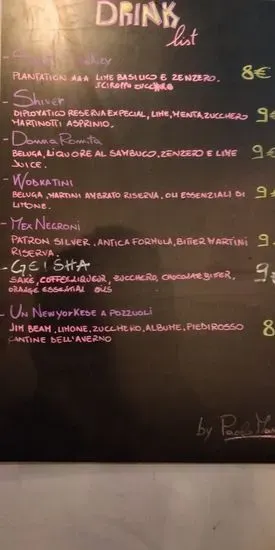 DRINK
list
PLANTATION AAA LIME BASILICO E ZENZERO. 8€
SCIROPPO ZUCCHERO
- SHIVER
DIPLOMATICO RESERVA EXPECIAL, LIME, MENTA, ZUCCHERO 9€
MARTINOTTI ASPRINIO.
- DONNA ROMITA
BELUGA, LIQUORE AL SAMBUCO, ZENZERO E LIME 9€
JUICE.
- WODKATINI
BELUGA, MARTINI AMBRATO RISERVA, OLI ESSENZIALI DI 9
LIMONE.
- MEX NEGRONI
PATRON SILVER, ANTICA FORMULA, BITTER MARTINI 9
RISERVA.
- GEISHA
SAKE, COFFEE LIQUEUR, ZUCCHERO, CHOCOLATE BITTER, 9€
ORANGE ESSENTIAL OILS
- UN NEWYORKESE A POZZUOLI
JIM BEAM, LIMONE, ZUCCHERO, ALBUME, PIEDIROSSO 8
CANTINE DELL'AVERNO
by